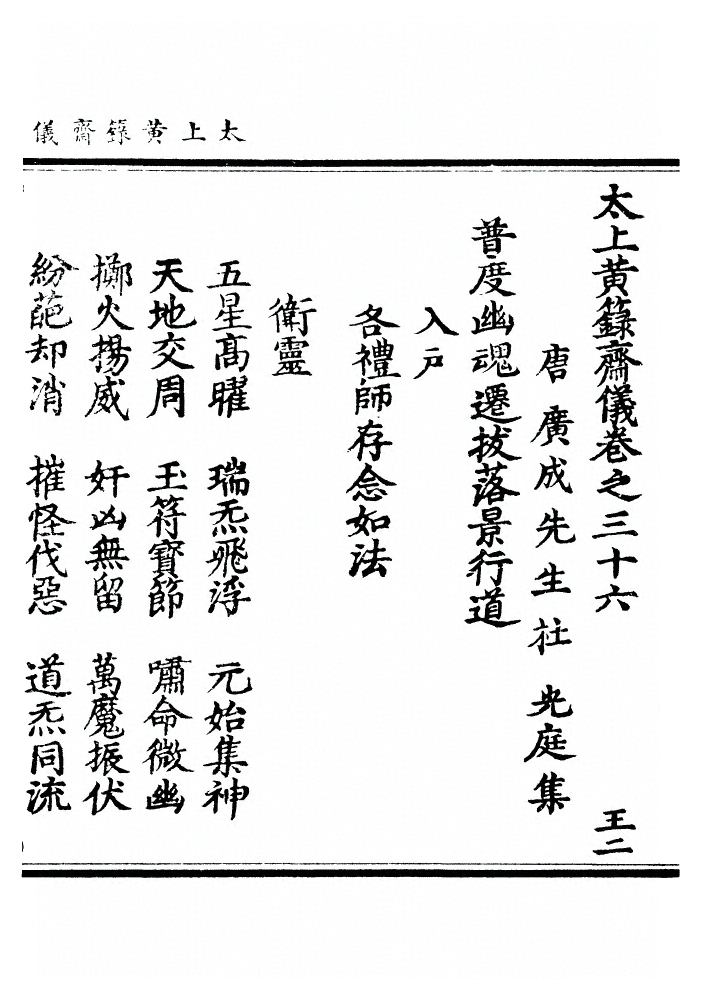 太上黄籙齋儀
太上黄籙齋儀卷之三十六 王二
唐廣成先生杜光庭集
普度幽魂遷拔落景行道
入户
各禮師存念如法
衛靈
五星高曜 瑞炁飛浮 元始集神
天地交周 玉符寶節 嘯命微幽
擲火揚威 奸凶無留 萬魔振伏
紛葩却消 摧怪伐惡 道炁同流